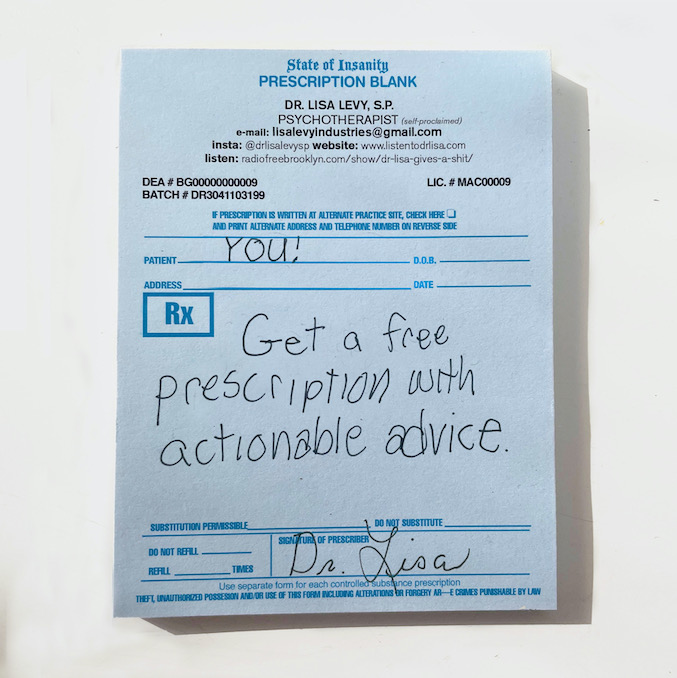 State of Insanity
PRESCRIPTION BLANK
DR. LISA LEVY, S.P.
PSYCHOTHERAPIST (self-proclaimed)
e-mail: lisalevyindustries@gmail.com
insta: @drlisalevysp website: www.listentodrlisa.com
listen: radiofreebrooklyn.com/show/dr-lisa-gives-a-shit/
DEA # BG00000000009 LIC. # MAC00009
BATCH # DR3041103199
IF PRESCRIPTION IS WRITTEN AT ALTERNATE PRACTICE SITE, CHECK HERE
AND PRINT ALTERNATE ADDRESS AND TELEPHONE NUMBER ON REVERSE SIDE
PATIENT YOU! D.O.B.
ADDRESS DATE
Rx
Get a free
prescription with
actionable advice.
SUBSTITUTION PERMISSIBLE DO NOT SUBSTITUTE
DO NOT REFILL SIGNATURE OF PRESCRIBER
REFILL TIMES Dr. Lisa
Use separate form for each controlled substance prescription
THEFT, UNAUTHORIZED POSSESION AND/OR USE OF THIS FORM INCLUDING ALTERATIONS OR FORGERY AR—E CRIMES PUNISHABLE BY LAW